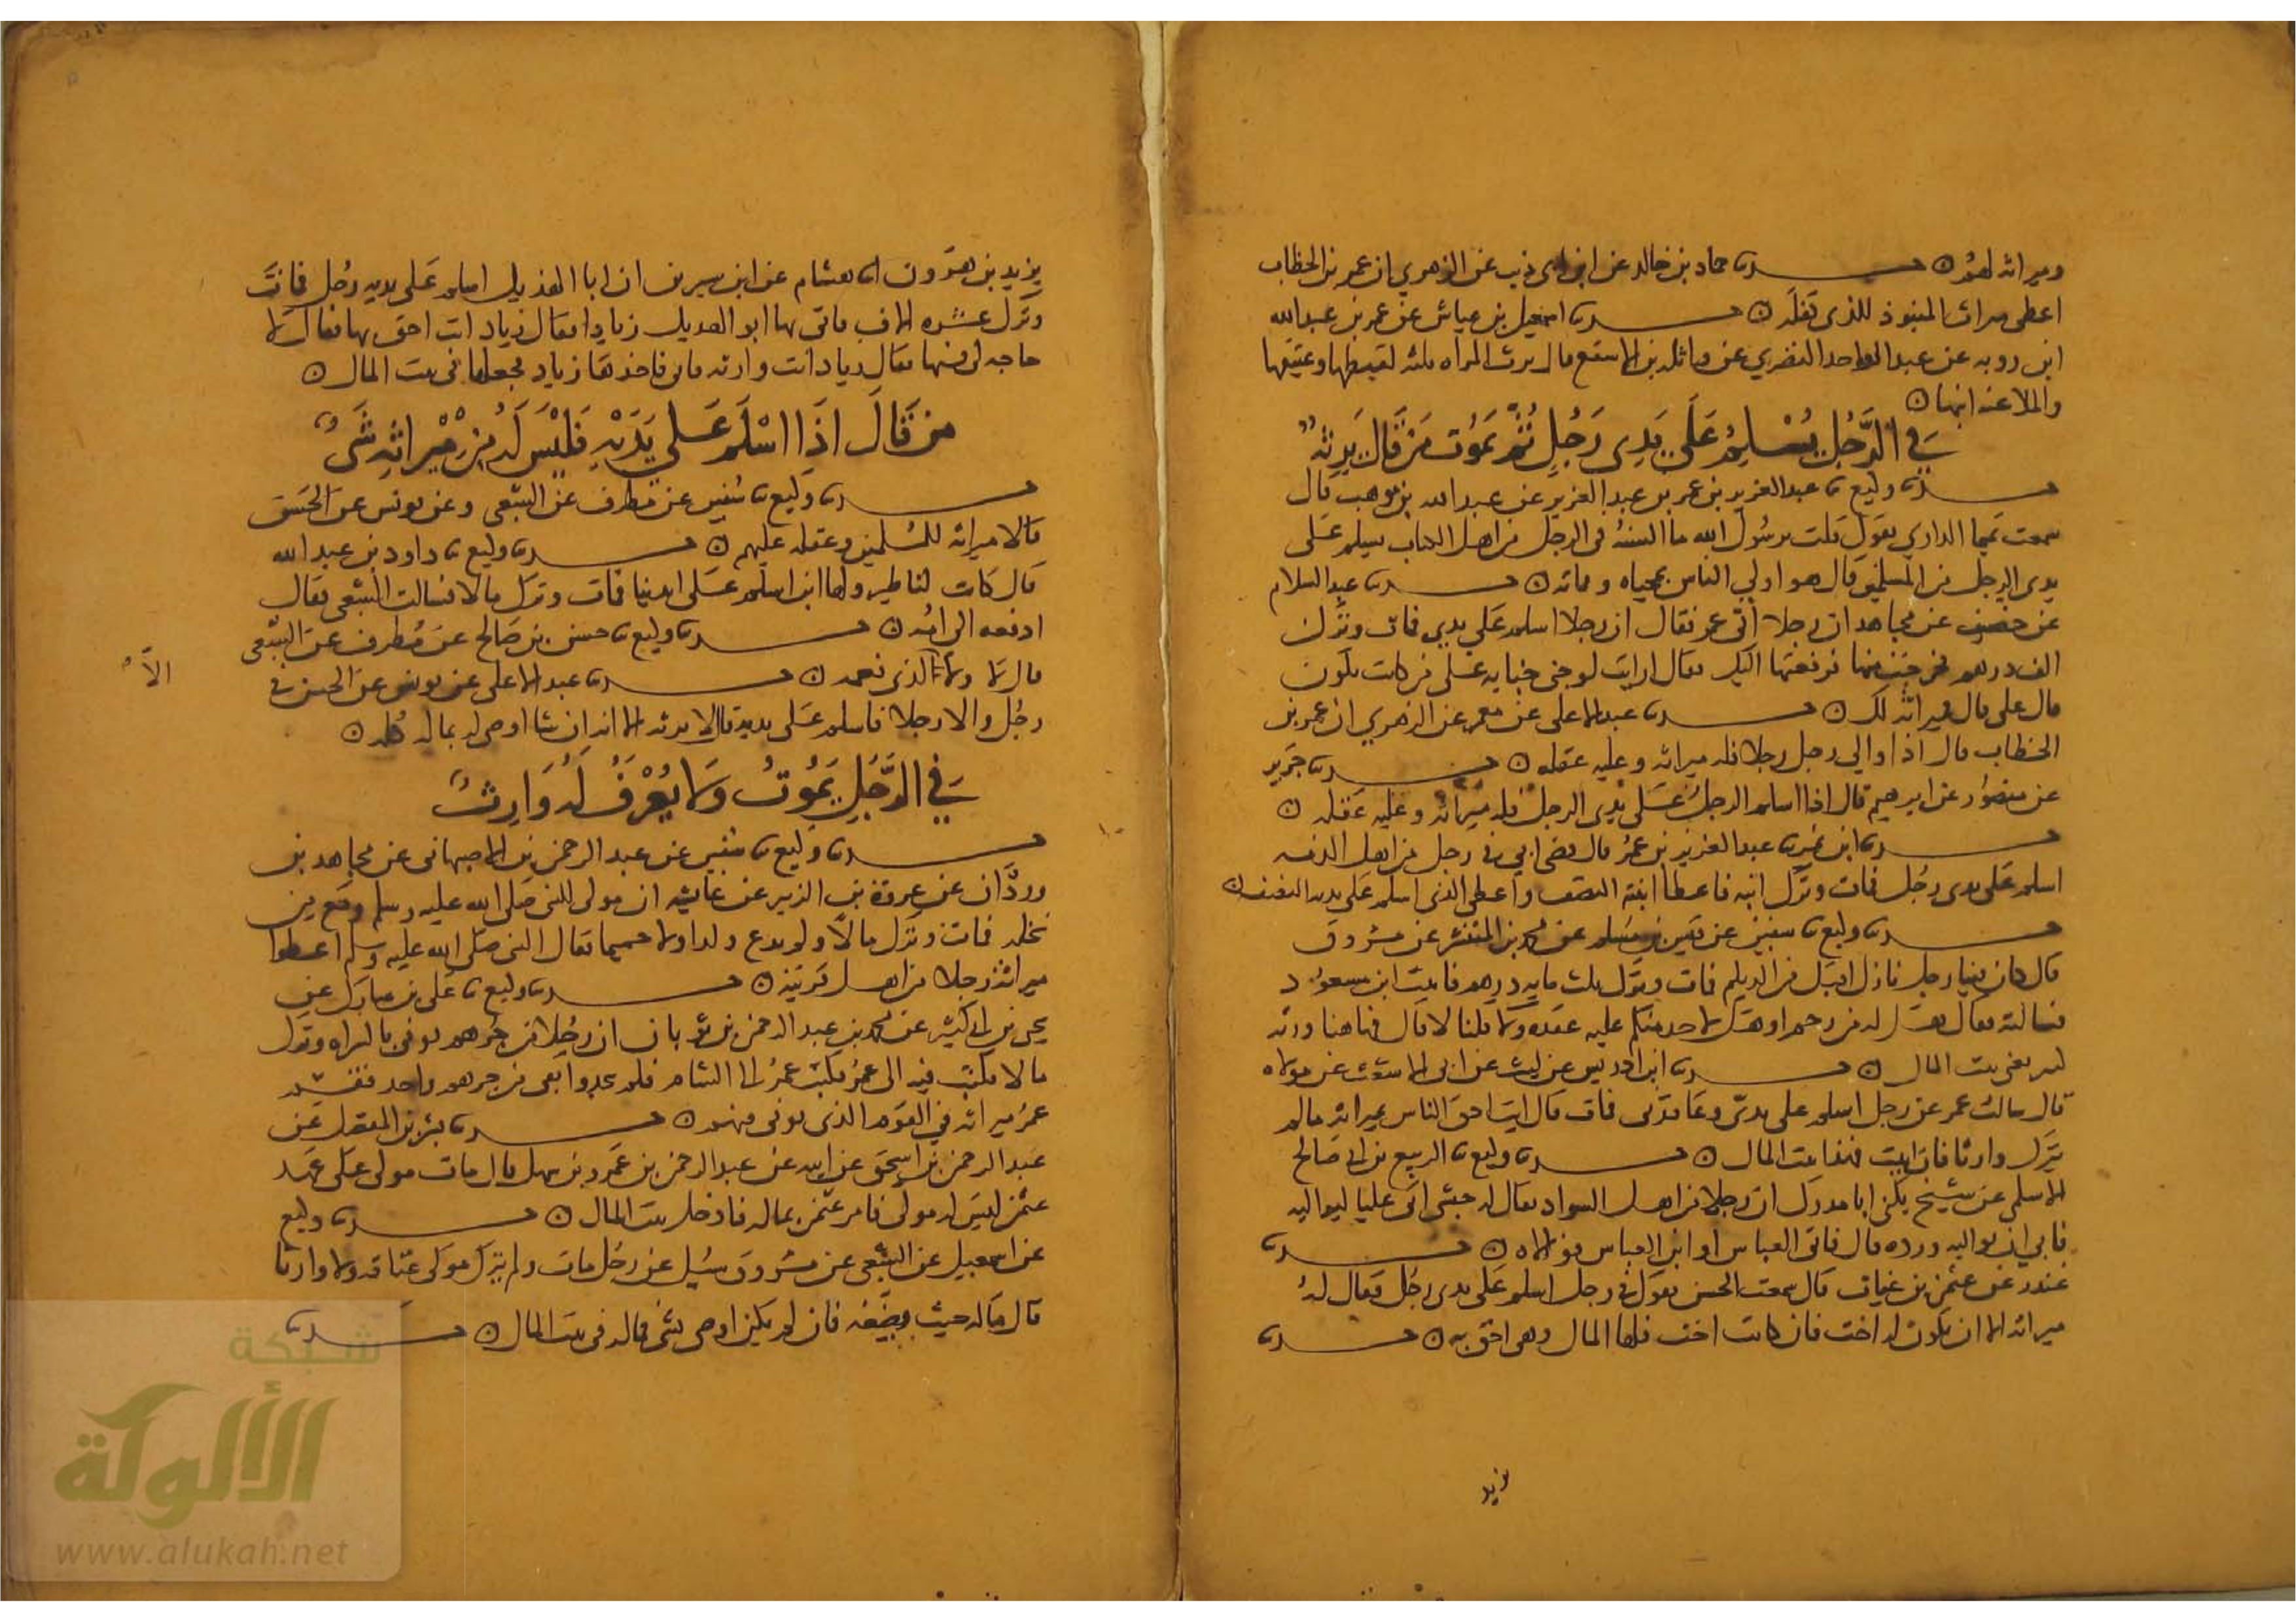 وميراثه لهم ۝ حدثنا حماد بن خالد عن ابن ابي ذيب عن الزهري ان عمر بن الخطاب
اعطى ميراث المنبوذ للذي كفله ۝ حدثنا اسمعيل بن عياش عن عمر بن عبدالله
ابن روبه عن عبد الواحد النصري عن واثله بن الاسقع قال يرث المراه ثلثه لقيطها وعتيقها
والملاعنه ابنها ۝
في الرَّجُل يُسْلِمُ عَلَى يَدِي رَجُلٍ ثُمَّ يَمُوت مَنْ قَالَ يَرِثُهُ
حدثنا وكيع نا عبدالعزيز بن عمر بن عبدالعزيز عن عبدالله بن موهب قال
سمعت تميما الداري يقول قلت يرسول الله ما السنة في الرجل من اهل الكتاب يسلم على
يدي الرجل من المسلمين قال هو اولي الناس بمحياه ومماته ۝ حدثنا عبد السلام
عن خصيف عن مجاهد ان رجلا اتى عمر فقال ان رجلا اسلم على يدي فمات وترك
الف درهم فتحرجت منها فرفعتها اليك فقال ارايت لو جنى جنايه على من كانت تكون
قال علي قال فميراثه لك ۝ حدثنا عبد الاعلى عن معمر عن الزهري ان عمر بن
الخطاب قال اذا والي رجل رجلا فله ميراثه وعليه عقله ۝ حدثنا جرير
عن منصور عن ابرهيم قال اذا اسلم الرجل على يدي الرجل فله ميراثه وعليه عقله ۝
حدثنا ابن نمير نا عبد العزيز بن عمر قال قضى ابي في رجل من اهل الذمه
اسلم على يدي رجل فمات وترك ابنه فاعطا ابنته النصف واعطى الذي اسلم على يديه النصف ۝
حدثنا وكيع نا سفين عن قيس بن مسلم عن محمد بن المنتشر عن مسروق
قال كان فينا رجل نازل اقبل من الديلم فمات وترك ثلث مايه درهم فاتيت ابن مسعود
فسالته فقال هل له من رحم او هل لاحد منكم عليه عقد ولا قلنا لا قال فهاهنا ورثه
كثير يعني بيت المال ۝ حدثنا ابن ادريس عن ليث عن ابي الاشعث عن مولاه
قال سالت عمر عن رجل اسلم على يدي وعاقدني فمات قال انت احق الناس بميراثه مالم
يترك وارثا فان ابيت فهذا بيت المال ۝ حدثنا وكيع نا الربيع بن ابي صالح
الاسلمي عن شيخ يكنى ابا مدرك ان رجلا من اهل السواد يقال له حبشي اتى عليا ليواليه
فابي ان يواليه ورده قال فاتى العباس او ابن العباس فوالاه ۝ حدثنا
غندر عن عثمن بن غياث قال سمعت الحسن يقول في رجل اسلم على يدي رجل فقال له
ميراثه الا ان يكون له اخت فان كانت اخت فلها المال وهي احق به ۝ حدثنا
يزيد
يزيد بن هرون انا هشام عن ابن سيرين ان ابا الهذيل اسلم على يديه رجل فمات
وترك عشره الاف فاتى بها ابو الهذيل زيادا فقال زياد انت احق بها فقال لا
حاجه لي فيها فقال زياد انت وارثه فابى فاخذها زياد فجعلها في بيت المال ۝
من قَالَ اذَا اسْلَمَ عَلى يَدَيْهِ فَلَيْسَ لَهُ مِنْ مِيْرَاثِهِ شَيٌ
حدثنا وكيع نا سفين عن مطرف عن الشعبي وعن يونس عن الحسن
قالا ميراثه للمسلمين وعقله عليهم ۝ حدثنا وكيع نا داود بن عبد الله
قال كانت لنا ظير ولها ابن اسلم على ايدينا فمات وترك مالا فسالت الشعبي فقال
ادفعه الى امه ۝ حدثنا وكيع نا حسن بن صالح عن مطرف عن الشعبي
قال لا ولا الا لذي نعمه ۝ حدثنا عبد الاعلى عن يونس عن الحسن في
رجل والا رجلا فاسلم على يديه قالا لا يرثه الا انه ان شا اوصى له بماله كله ۝
في الرَّجُلِ يَمُوتُ وَلا يُعْرَفُ لَهُ وَارِثٌ
حدثنا وكيع نا سفين عن عبد الرحمن بن الاصبهاني عن مجاهد بن
وردان عن عروة بن الزبير عن عايشه ان مولى للنبي صلى الله عليه وسلم وقع من
نخله فمات وترك مالا ولم يدع ولدا ولا حميما فقال النبي صلى الله عليه وسلم اعطوا
ميراثه رجلا من اهل قريته ۝ حدثنا وكيع نا علي بن مبارك عن
يحيى بن ابي كثير عن محمد بن عبد الرحمن بن ثوبان ان رجلا من جرهم توفي بالسراه وترك
مالا فكتب فيه الى عمر فكتب عمر الى الشام فلم يجدوا بقي من جرهم واحد فقسم
عمر ميراثه في القوم الذي توفي فيهم ۝ حدثنا بشر بن المفضل عن
عبد الرحمن بن اسحق عن ابيه عن عبد الرحمن بن عمرو بن سهل قال مات مولى على عهد
عثمن ليس له مولى فامر عثمن بماله فادخل بيت المال ۝ حدثنا وكيع
عن اسمعيل عن الشعبي عن مسروق سئيل عن رجل مات ولم يترك مولى عتاقه ولا وارثا
قال ماله حيث وضعه فان لم يكن اوصى بشي فماله في بيت المال ۝ حدثنا
الا
شبكة
الألوكة
www.alukah.net